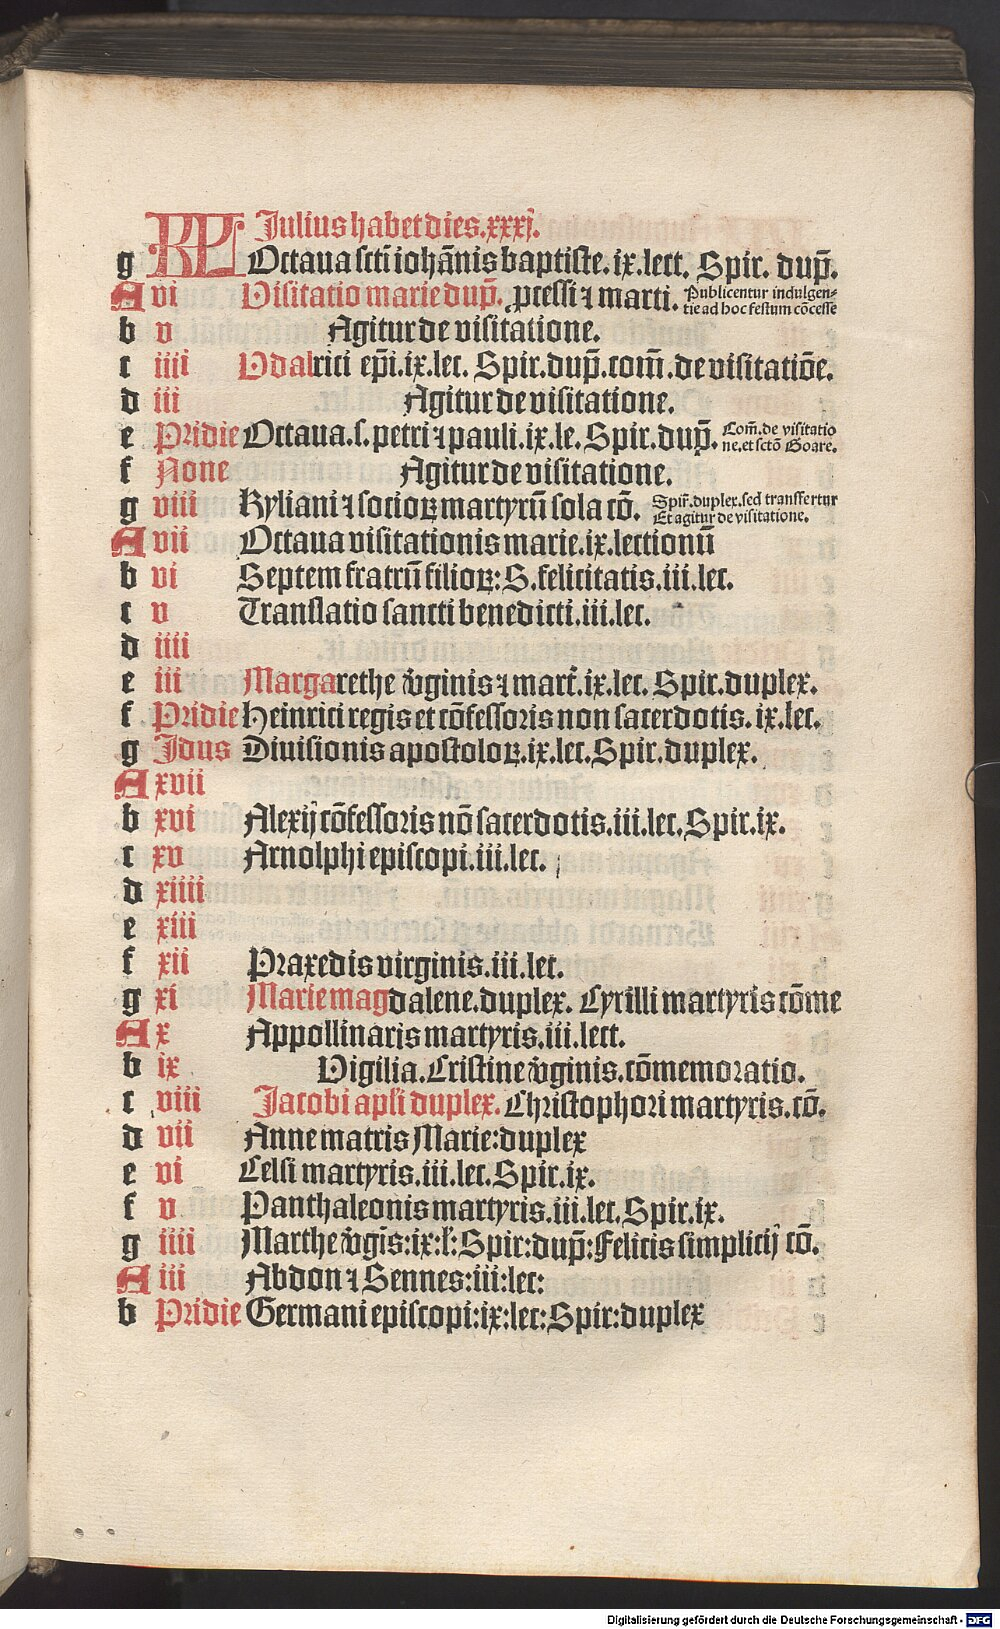 KL Julius habet dies.xxxj.
g Octaua scti iohānis baptiste.ix.lect. Spir. dup̄.
A vi Visitatio marie dup̄. ꝓcessi ⁊ marti. Publicentur indulgen⸗
tie ad hoc festum cōcesse
b v Agitur de visitatione.
c iiii Vdalrici ep̄i.ix.lec. Spir.dup̄.com̄.de visitatiōe.
d iii Agitur de visitatione.
e Pridie Octaua.s.petri ⁊ pauli.ix.le. Spir.dup̄. Com̄.de visitatio
ne.et sctō Goare.
f None Agitur de visitatione.
g viii Kyliani ⁊ socioꝝ martyrū sola cō. Spir̄.duplex.sed transfertur
Et agitur de visitatione.
A vii Octaua visitationis marie.ix.lectionū
b vi Septem fratrū filioꝝ: S. felicitatis.iii.lec.
c v Translatio sancti benedicti.iii.lec.
d iiii
e iii Margarethe v̄ginis ⁊ mart̄.ix.lec. Spir.duplex.
f Pridie Heinrici regis et cōfessoris non sacerdotis. ix.lec.
g Idus Diuisionis apostoloꝝ.ix.lec.Spir.duplex.
A xvii
b xvi Alexij cōfessoris nō sacerdotis.iii.lec.Spir.ix.
c xv Arnolphi episcopi.iii.lec.
d xiiii
e xiii
f xii Praxedis virginis.iii.lec.
g xi Marie magdalene.duplex. Cyrilli martyris cōme
A x Appollinaris martyris.iii.lect.
b ix Vigilia.Cristine v̄ginis.cōmemoratio.
c viii Jacobi apl̄i duplex. Christophori martyris.cō.
d vii Anne matris Marie:duplex
e vi Celsi martyris.iii.lec.Spir.ix.
f v Panthaleonis martyris.iii.lec.Spir.ix.
g iiii Marthe v̄gīs:ix:l̄:Spir:dup̄:Felicis simplicij cō.
A iii Abdon ⁊ Sennes:iii:lec:
b Pridie Germani episcopi:ix:lec:Spir:duplex
Digitalisierung gefördert durch die Deutsche Forschungsgemeinschaft - DFG